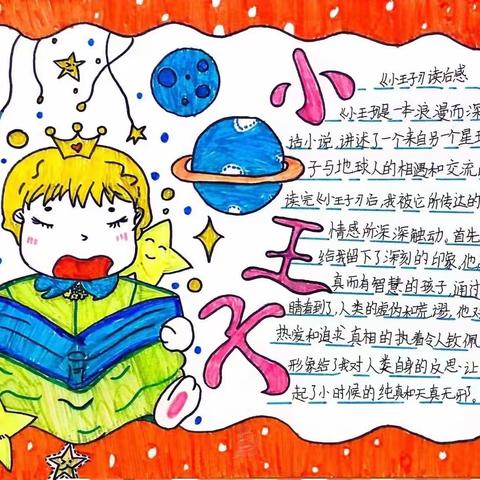 小
王
K
《小王子》读后感
《小王子》是一本浪漫而深
话小说,讲述了一个来自另一个星
子与地球人的相遇和交流
读完《小王子》后,我被它所传达的
情感所深深触动。首先
给我留下了深刻的印象,他
真而有智慧的孩子,通过
睛看到了,人类的虚伪和荒谬,他对
热爱和追求真相的执着令人钦佩
形象给了我对人类自身的反思,让
起了小时候的纯真和天真无邪。